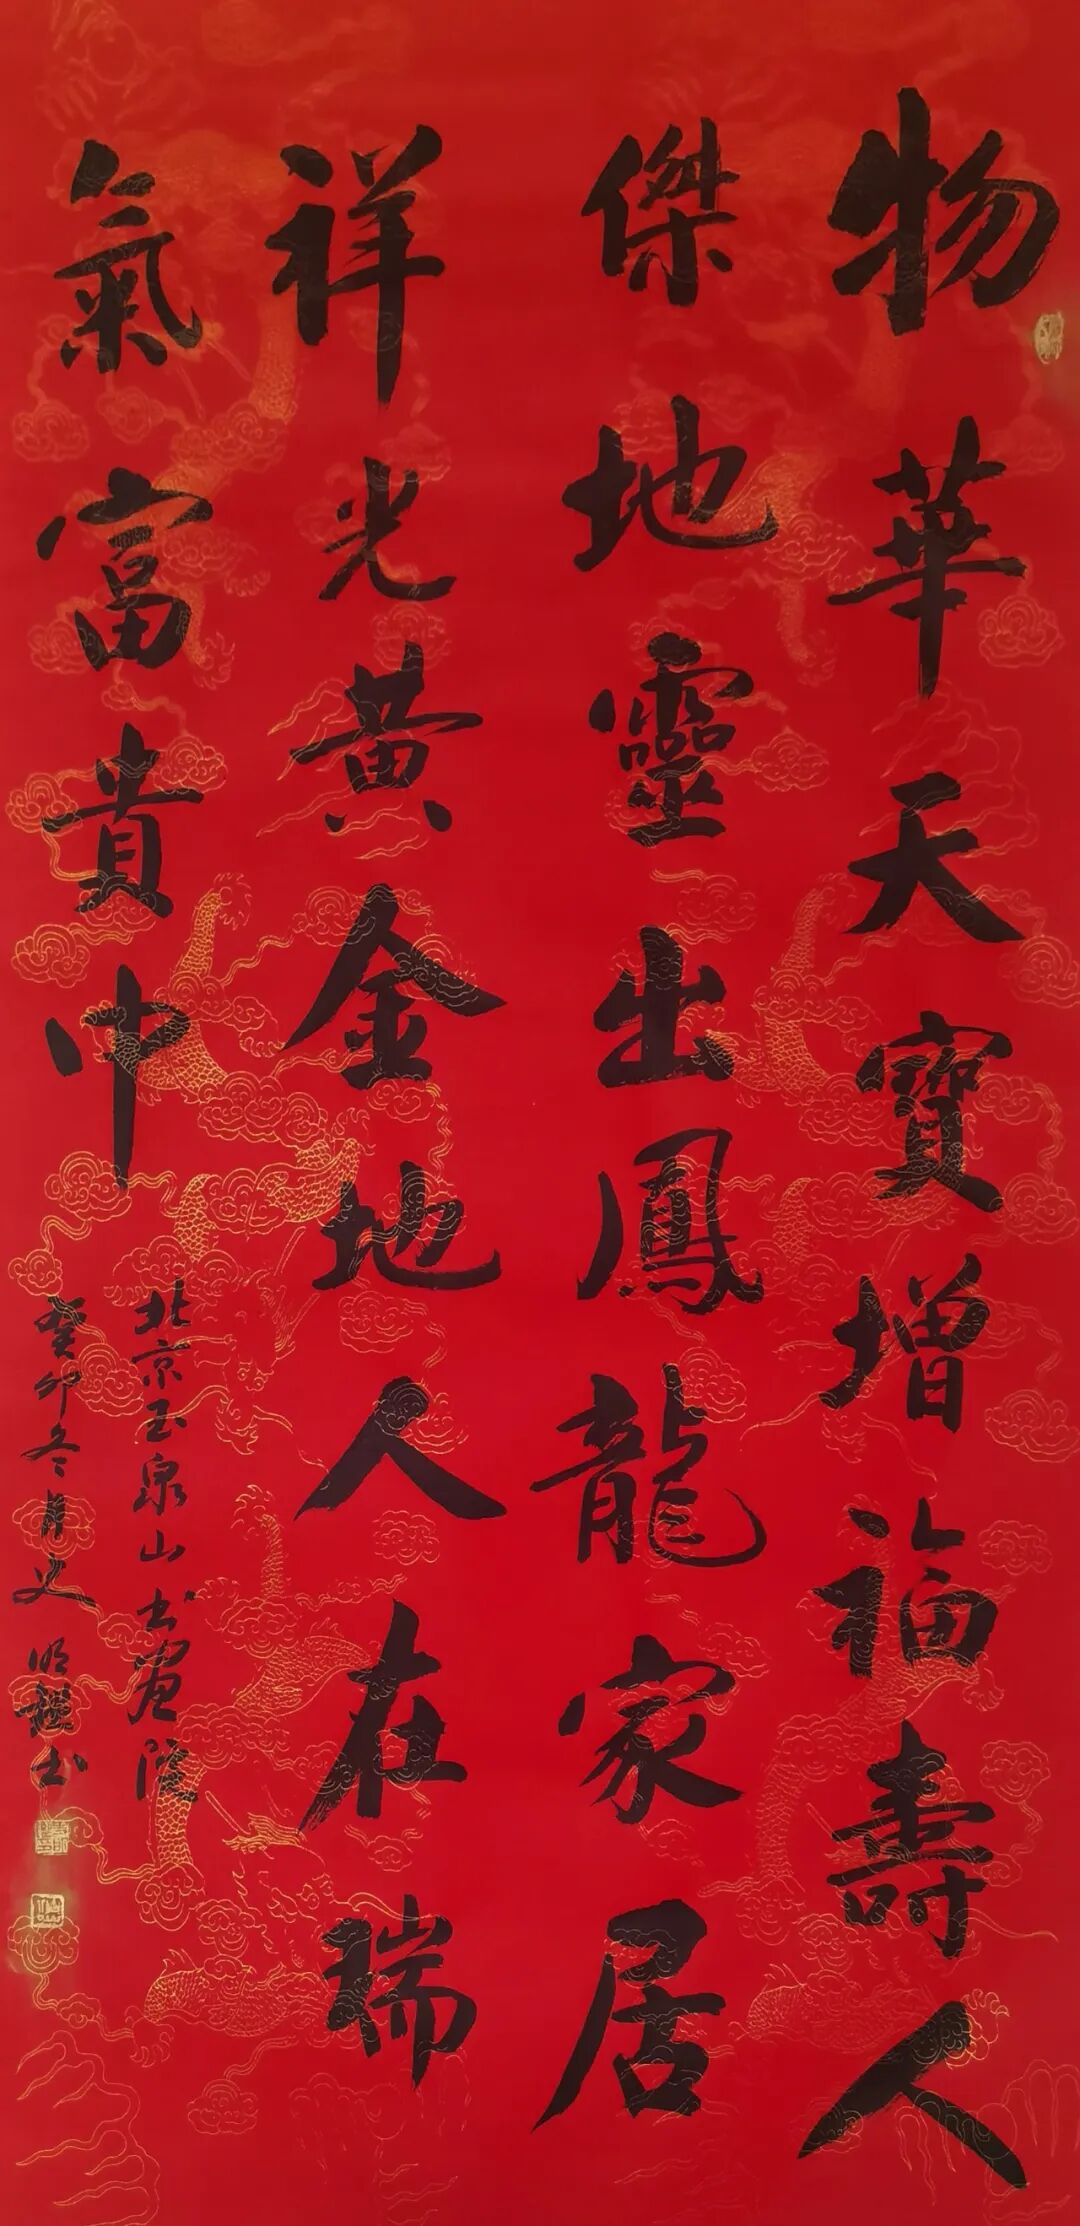 物華天寶增福壽人
傑地靈出鳳龍家居
祥光黄金地人在瑞
氣富貴中
北京玉泉山书画院
癸卯冬月史明鑑书